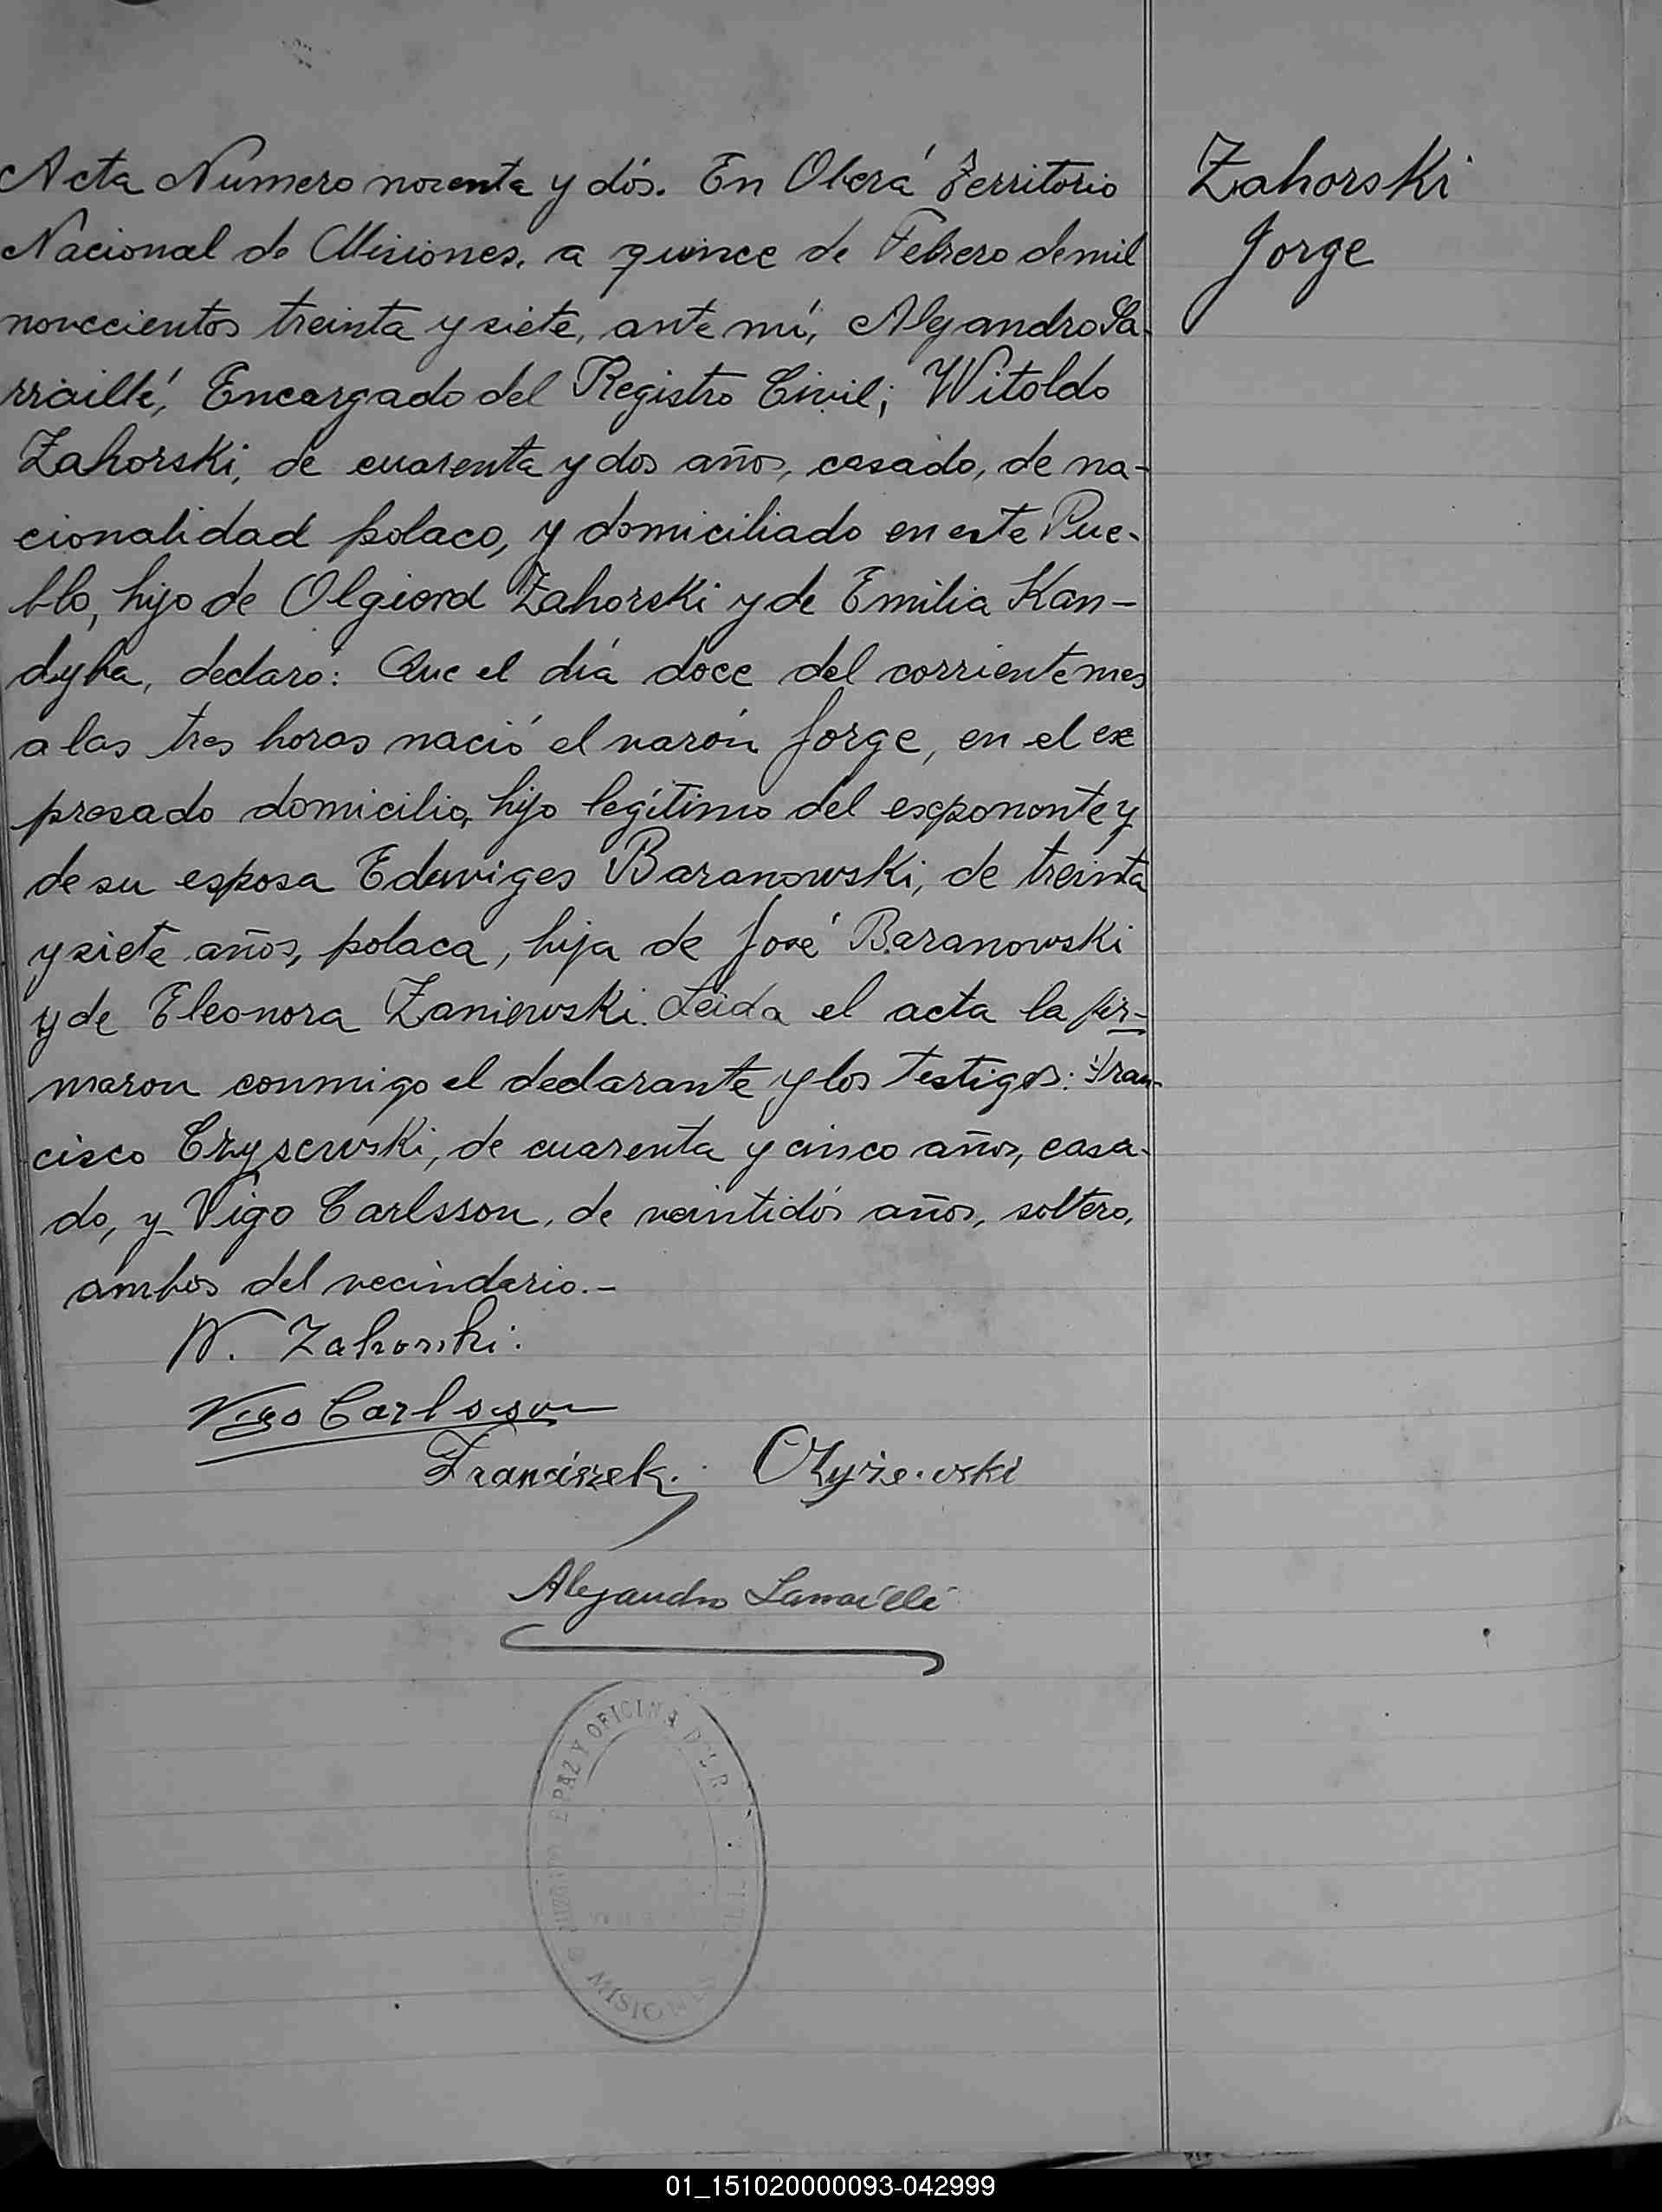 Acta Numero noventa y dós. En Oberá Territorio
Nacional de Misiones, a quince de Febrero de mil
novecientos treinta y siete, ante mí, Alejandro La-
rraillé, Encargado del Registro Civil; Witoldo
Zahorski, de cuarenta y dos años, casado, de na-
cionalidad polaco, y domiciliado en este Pue-
blo, hijo de Olgierd Zahorski y de Emilia Kan-
dyba, declaró: Que el día doce del corriente mes
a las tres horas nació el varón Jorge, en el ex
presado domicilio, hijo legítimo del exponente y
de su esposa Eduviges Baranowski, de treinta
y siete años, polaca, hija de José Baranowski
y de Eleonora Zaniewski. Leida el acta la fir-
maron conmigo el declarante y los testigos: Fran-
cisco Czysewski, de cuarenta y cinco años, casa-
do, y Vigo Carlsson, de veintidós años, soltero,
ambos del vecindario.-
Zahorski
Jorge
W. Zahorski.
Vigo Carlsson
Franciszek Czyżewski
Alejandro Larraillé
PAZ Y OFICINA DEL R
MISIONES
01_151020000093-042999